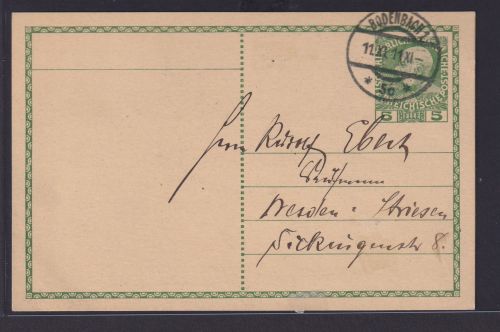 BODENBACH 2
11.XI.11.XI-
* 5c *
REICHISCHE POST
5 HELLER 5
Herrn Rudolf Ebert
Kaufmann
Dresden - Striesen
Sickingenstr 8.